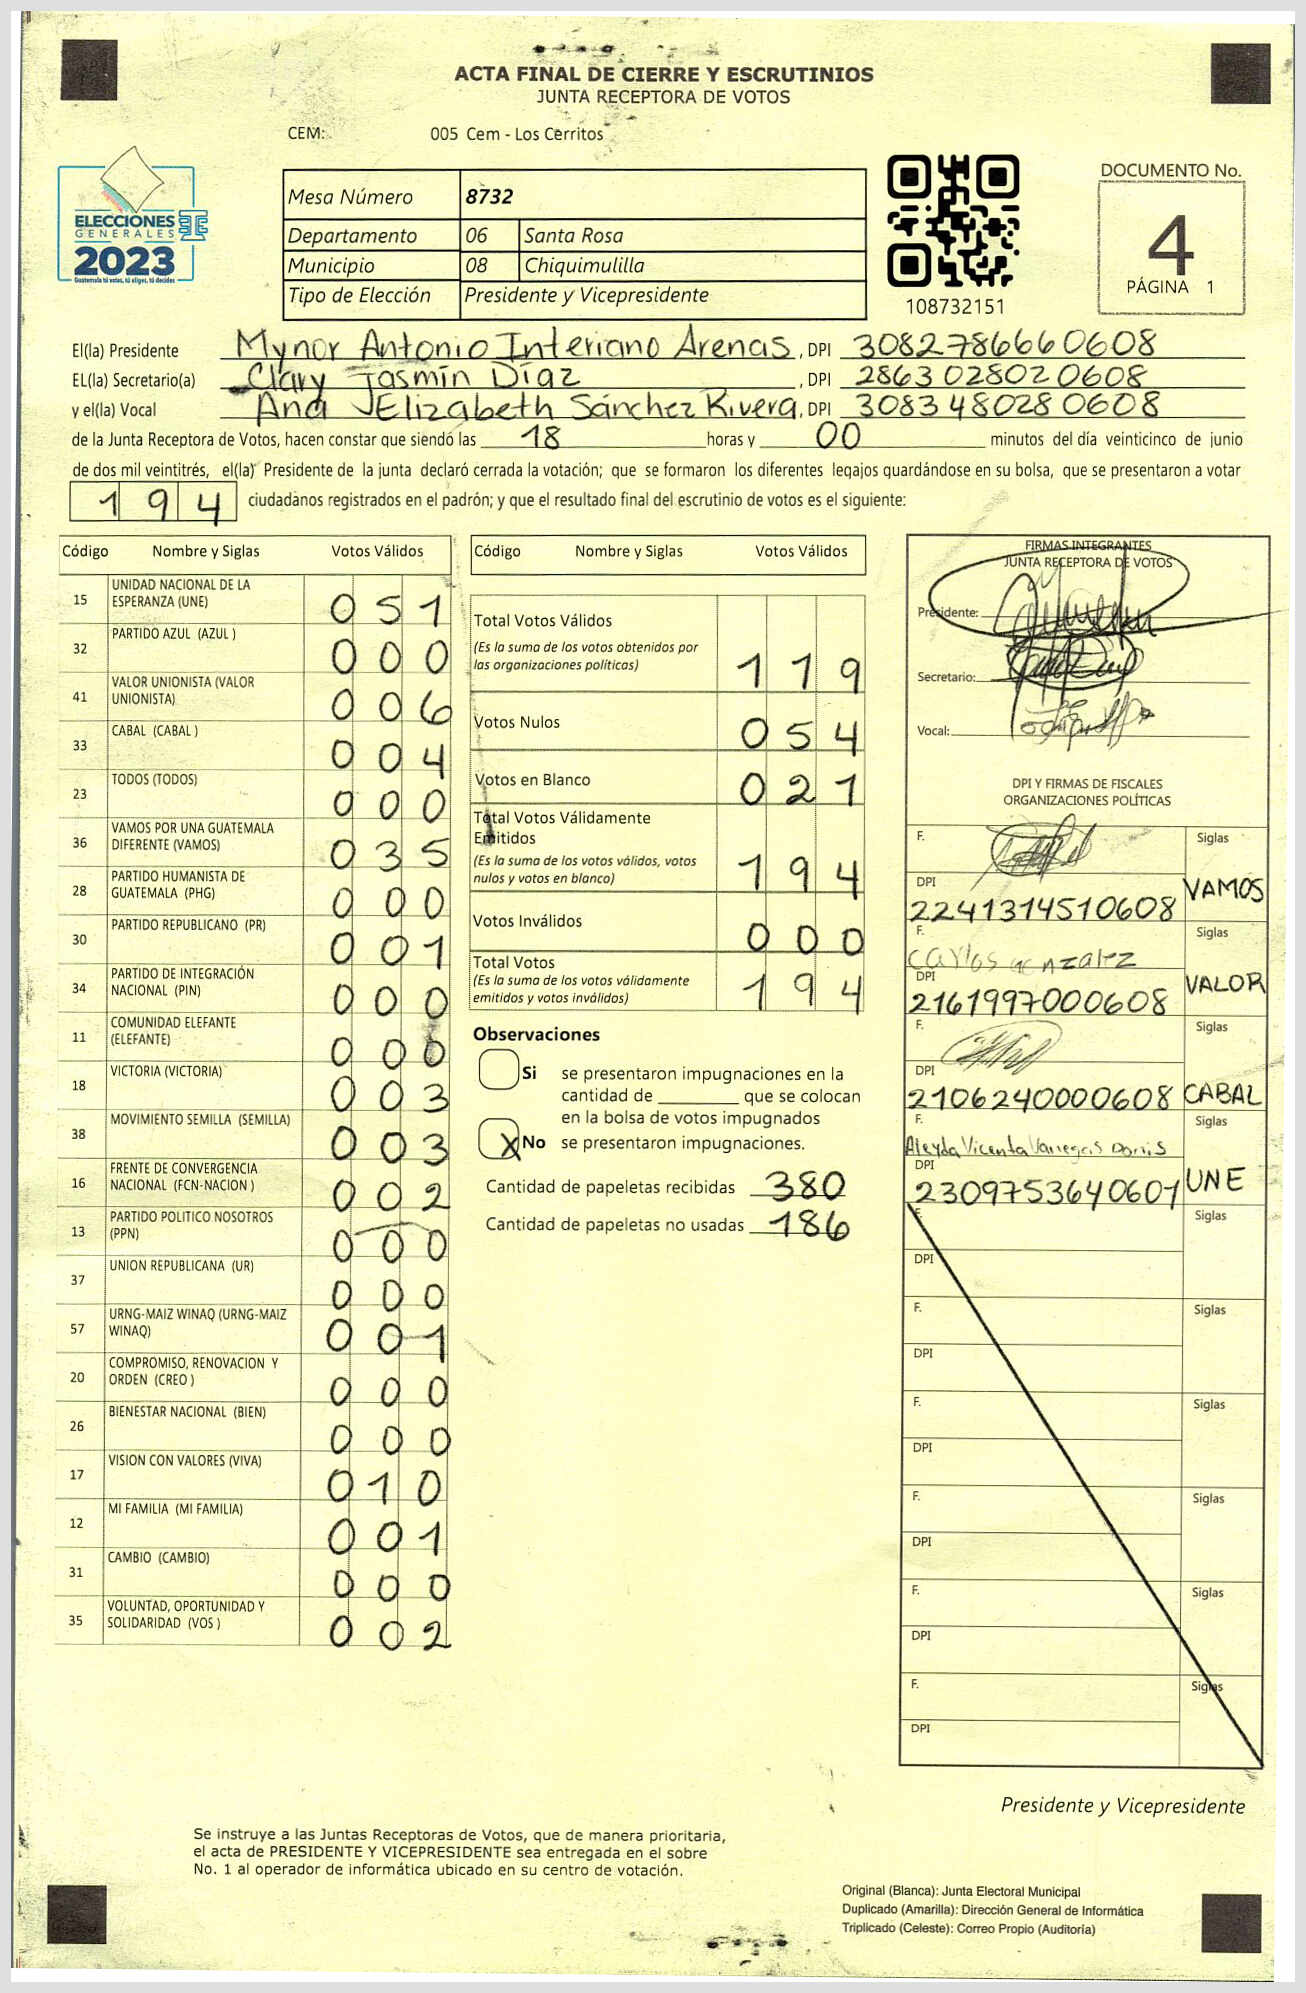 ACTA FINAL DE CIERRE Y ESCRUTINIOS
JUNTA RECEPTORA DE VOTOS
CEM: 005 Cem - Los Cerritos
ELECCIONES
GENERALES
2023
Guatemala tú votas, tú eliges, tú decides
Mesa Número 8732
Departamento 06 Santa Rosa
Municipio 08 Chiquimulilla
Tipo de Elección Presidente y Vicepresidente
108732151
DOCUMENTO No.
4
PÁGINA 1
El(la) Presidente Mynor Antonio Interiano Arenas, DPI 3082786660608
EL(la) Secretario(a) Clary Jasmín Díaz, DPI 2863028020608
y el(la) Vocal Ana Elizabeth Sánchez Rivera, DPI 3083480280608
de la Junta Receptora de Votos, hacen constar que siendo las 18 horas y 00 minutos del día veinticinco de junio
de dos mil veintitrés, el(la) Presidente de la junta declaró cerrada la votación; que se formaron los diferentes legajos quardándose en su bolsa, que se presentaron a votar
194 ciudadanos registrados en el padrón; y que el resultado final del escrutinio de votos es el siguiente:
Código Nombre y Siglas Votos Válidos
15 UNIDAD NACIONAL DE LA ESPERANZA (UNE) 051
32 PARTIDO AZUL (AZUL ) 000
41 VALOR UNIONISTA (VALOR UNIONISTA) 006
33 CABAL (CABAL ) 004
23 TODOS (TODOS) 000
36 VAMOS POR UNA GUATEMALA DIFERENTE (VAMOS) 035
28 PARTIDO HUMANISTA DE GUATEMALA (PHG) 000
30 PARTIDO REPUBLICANO (PR) 001
34 PARTIDO DE INTEGRACIÓN NACIONAL (PIN) 000
11 COMUNIDAD ELEFANTE (ELEFANTE) 000
18 VICTORIA (VICTORIA) 003
38 MOVIMIENTO SEMILLA (SEMILLA) 003
16 FRENTE DE CONVERGENCIA NACIONAL (FCN-NACION ) 002
13 PARTIDO POLITICO NOSOTROS (PPN) 000
37 UNION REPUBLICANA (UR) 000
57 URNG-MAIZ WINAQ (URNG-MAIZ WINAQ) 001
20 COMPROMISO, RENOVACION Y ORDEN (CREO ) 000
26 BIENESTAR NACIONAL (BIEN) 000
17 VISION CON VALORES (VIVA) 010
12 MI FAMILIA (MI FAMILIA) 001
31 CAMBIO (CAMBIO) 000
35 VOLUNTAD, OPORTUNIDAD Y SOLIDARIDAD (VOS ) 002
Código Nombre y Siglas Votos Válidos
Total Votos Válidos
(Es la suma de los votos obtenidos por
las organizaciones políticas) 119
Votos Nulos 054
Votos en Blanco 021
Total Votos Válidamente
Emitidos
(Es la suma de los votos válidos, votos
nulos y votos en blanco) 194
Votos Inválidos 000
Total Votos
(Es la suma de los votos válidamente
emitidos y votos inválidos) 194
Observaciones
Si se presentaron impugnaciones en la
cantidad de ________ que se colocan
en la bolsa de votos impugnados
X No se presentaron impugnaciones.
Cantidad de papeletas recibidas 380
Cantidad de papeletas no usadas 186
FIRMAS INTEGRANTES
JUNTA RECEPTORA DE VOTOS
Presidente:
Secretario:
Vocal:
DPI Y FIRMAS DE FISCALES
ORGANIZACIONES POLÍTICAS
F. Siglas
DPI VAMOS
2241314510608
F. Siglas
Carlos Gonzalez
DPI VALOR
2161997000608
F. Siglas
DPI
2106240000608 CABAL
F. Siglas
Aleyda Vicenta
DPI
2309753640601 UNE
F. Siglas
DPI
F. Siglas
DPI
F. Siglas
DPI
F. Siglas
DPI
F. Siglas
DPI
F. Siglas
DPI
Presidente y Vicepresidente
Se instruye a las Juntas Receptoras de Votos, que de manera prioritaria,
el acta de PRESIDENTE Y VICEPRESIDENTE sea entregada en el sobre
No. 1 al operador de informática ubicado en su centro de votación.
Original (Blanca): Junta Electoral Municipal
Duplicado (Amarilla): Dirección General de Informática
Triplicado (Celeste): Correo Propio (Auditoría)